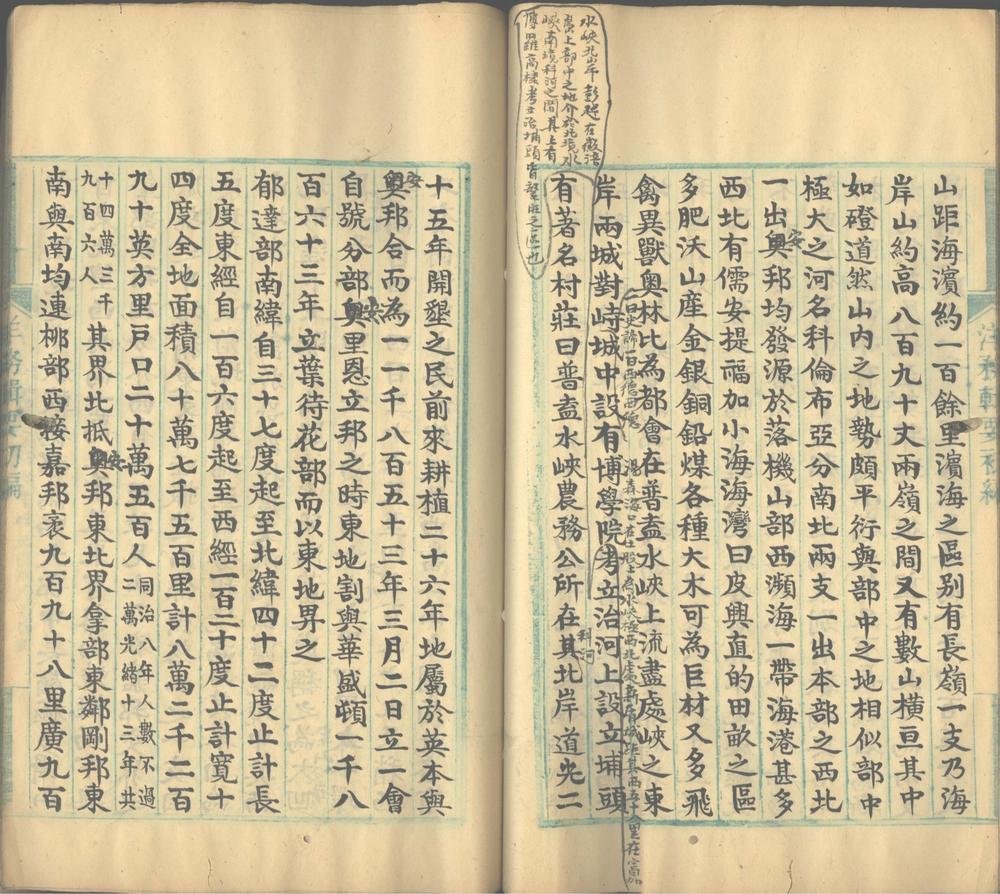 水峽北岸彭越在徽浯
山距海濱約一百餘里濱海之區别有長嶺一支乃海
岸山約高八百九十丈兩嶺之間又有數山橫亘其中
如磴道然山内之地勢頗平衍與部中之地相似部中
極大之河名科倫布亞分南北兩支一出本部之西北
一出奥邦均發源於落機山部西瀕海一帶海港甚多
安
西北有儒安提福加小海海灣曰皮興直的田畝之區
多肥沃山産金銀銅鉛煤各種大木可為巨材又多飛
禽異獸奥林比為都會在普盍水峽上流盡處峽之東
岸兩城對峙城中設有博學院考立治河上設立埔頭
科河
有著名村莊曰普盍水峽農務公所在其北岸道光二
十五年開墾之民前來耕植二十六年地屬於英本與
奥邦合而為一一千八百五十三年三月二日立一會
安
自號分部奥里恩立邦之時東地割與華盛頓一千八
百六十三年立葉待花部而以東地畀之
郁達部南緯自三十七度起至北緯四十二度止計長
五度東經自一百六度起至西經一百二十度止計寬十
四度全地面積八十萬七千五百里計八萬二千二百
九十英方里戶口二十萬五百人同治八年人數不過
二萬光緒十三年共
十四萬三千
九百六人
其界北抵奥邦東北界拿部東鄰剛邦東
南與南均連梛部西接嘉邦袤九百九十八里廣九百